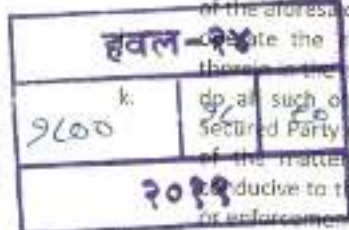 of the aforesa
हवल-२४
ate the
therein in the
k.
do all such o
१८००
Secured Party
of the matter
conducive to t
or enforcement